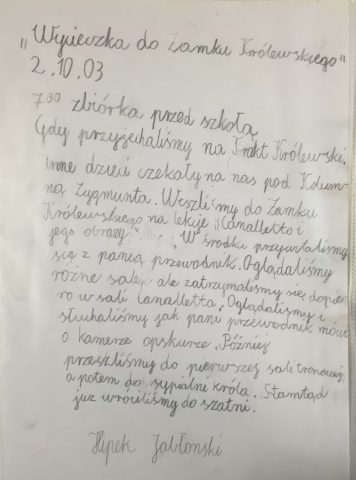 „Wycieczka do Zamku Królewskiego"
2.10.03
7⁰⁰ zbiórka przed szkołą
Gdy przyjechaliśmy na Trakt Królewski.
inne dzieci czekały na nas pod Kolum-
ną Zygmunta. Weszliśmy do Zamku
Królewskiego na lekcję „Canalletto i
jego obrazy". W środku przywitaliśmy
się z panią przewodnik. Oglądaliśmy
różne sale, ale zatrzymaliśmy się dopie-
ro w sali Canalletta. Oglądaliśmy i
słuchaliśmy jak pani przewodnik mówi
o kamerze opskurze. Później
przeszliśmy do pierwszej sali tronowej,
a potem do sypialni króla. Stamtąd
już wróciliśmy do szatni.
Hipek Jabłonski